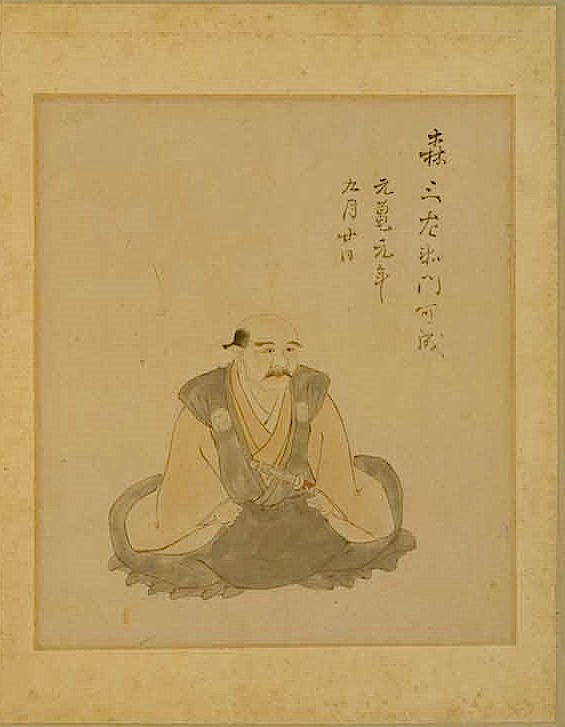 森三左衛門可成
元亀元年
九月廿日